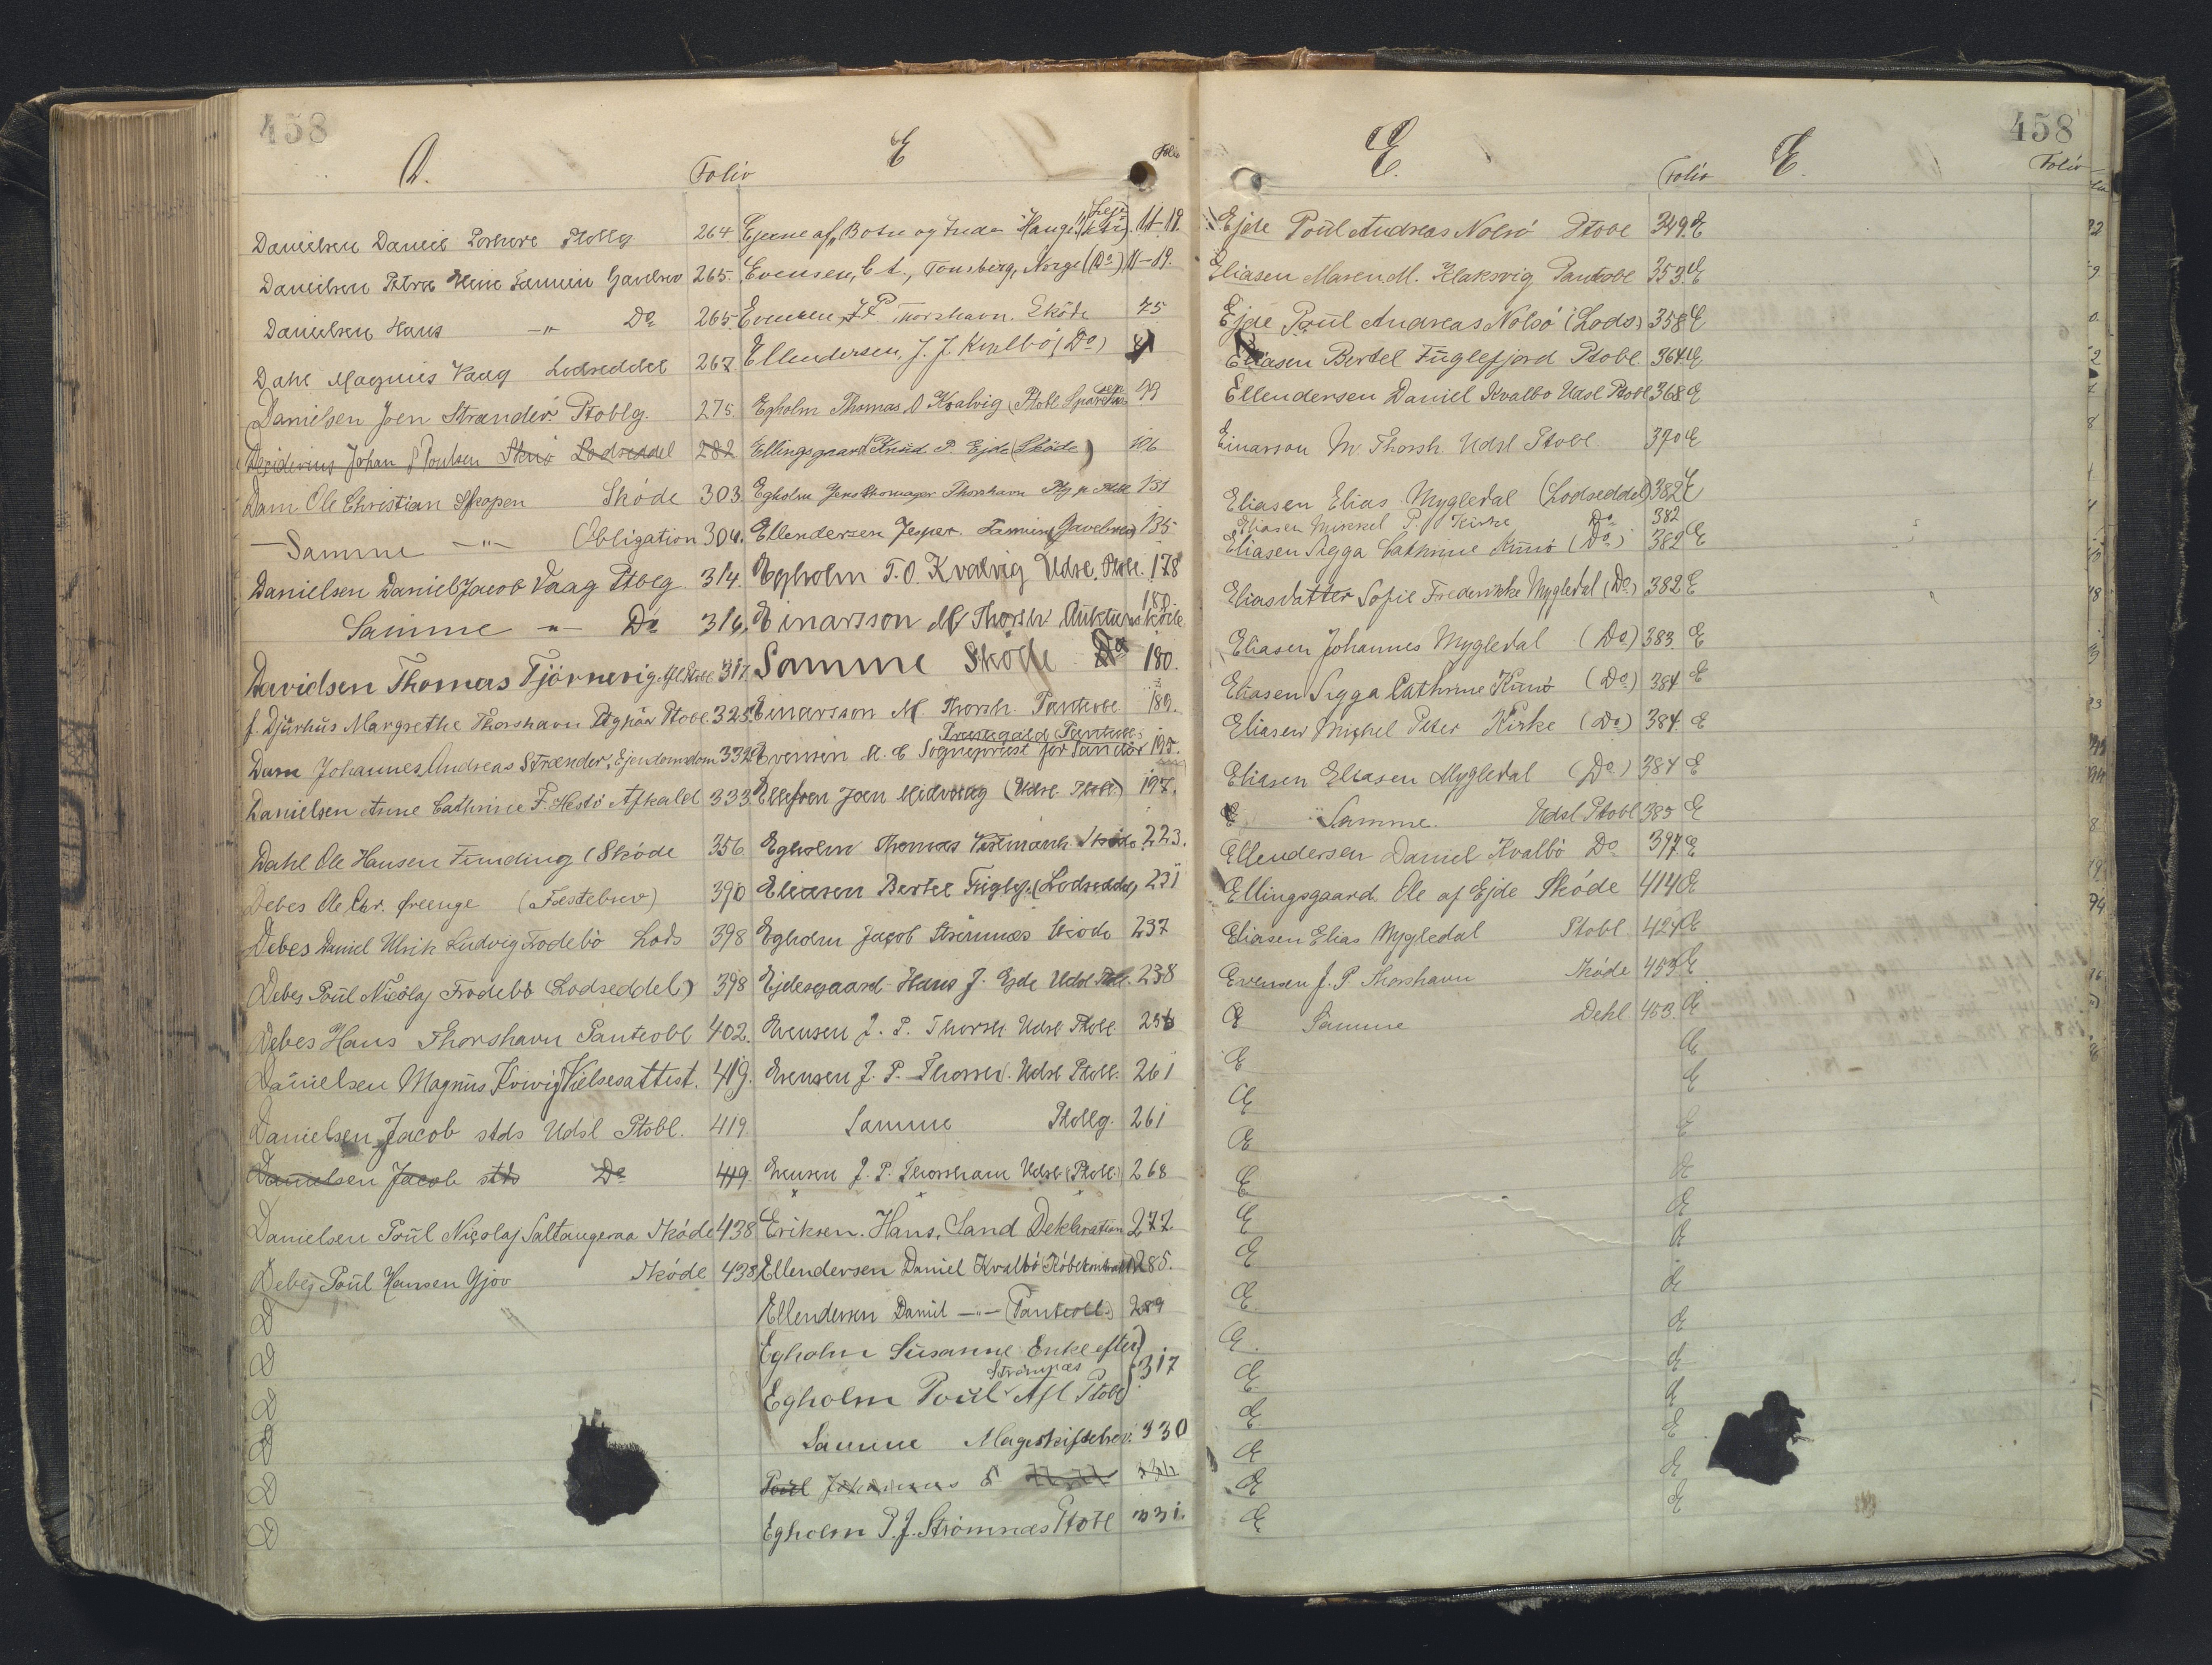 458
D.
Folio
Danielsen Daniel Porkere Ptoblg 264
Danielsen Petra Elene Famien Gavebrev 265.
Danielsen Hans -"- Do 265
Dahl Magnus Vaag Lodseddel 267
Danielsen Joen Strender Ptoblg. 275.
Desiderius Johan P Poulsen Skuö Lodseddel 282
Dam Ole Christian Skopen Sköde 303
Samme -"- Obligation 304.
Danielsen Daniel Jacob Vaag Ptblg 314.
Samme -"- Do 316.
Davidsen Thomas Tjörnevig Afl Ptobl 317
f. Djurhus Margrethe Thorshavn Ptobl 325
Dam Johannes Andreas Strender, Ejendomsdom 332
Danielsen Anne Cathrine F. Hestö Afkald 333
Dahl Ole Hansen Funding (Sköde 356
Debes Ole Chr. Örenge (Festebrev) 390
Debes Daniel Ulrik Ludvig Frodebö Lods 398
Debes Poul Nicolaj Frodebö (Lodseddel) 398
Debes Hans Thorshavn Panteobl 402.
Danielsen Magnus Kvivig Vielsesattest. 419.
Danielsen Jacob stds Udsl Ptobl. 419
Danielsen Jacob stds Do 419.
Danielsen Poul Nicolaj Saltangeraa Sköde 438
Debes Poul Hansen Gjov Sköde 438
D
D
D
D
D
D
E
Folio
Ejerne af, Botn og Inde i Haugi (Leje 11-19.
Evensen, C. A., Tönsberg, Norge (Do) 11-19.
Evensen J P Thorshavn. Sköde 75
Ellendersen, J. J. Kvalbö (Do)
Egholm Thomas O Kvalvig (Ptobl 99
Ellingsgaard Knud P. Ejde (Sköde) 106
Egholm Jens Skomager Thorshavn 131
Ellendersen Jesper. Famien Gavebrev 135
Egholm T. O. Kvalvig Udsl. Ptobl. 178
Einarsson M Thorsh Auktionsköde 180.
Samme Sköde Do 180.
Einarsson M Thorsh. Panteobl 189.
Evensen A. C Sognepræst for Sandö 195.
Ellefsen Joen Midvaag (Udsl. Ptobl.) 197.
Egholm Thomas Vestmanh. Sköde 223.
Eliasen Bertel Fuglef. (Lodseddel) 231
Egholm Jacob Strömnæs Sköde 237
Ejdesgaard Hans J. Ejde Udsl Ptobl. 238
Evensen J. P. Thorsh Udsl Ptobl 256
Evensen J. P. Thorsh. Udsl Ptobl. 261
Samme Ptoblg. 261
Evensen J. P. Thorshavn Udsl (Ptobl.) 268
Eriksen. Hans. Sand Deklaration 277
Ellendersen Daniel Kvalbö Köbekontrakt 285.
Ellendersen Daniel -"- (Panteobl.) 289
Egholm Susanne Enke efter }
Strömnæs
Egholm Poul Afl Ptobl } 317
Samme Mageskiftebrev. 330
Poul Johannes
Egholm P. J. Strömnæs Ptobl 331.
458
E.
Folio
E.
Folio
Ejde Poul Andreas Nolsö Ptobl 349. E
Eliasen Maren M. Klaksvig Panteobl 353. E
Ejde Poul Andreas Nolsö (Lods) 358 E
Eliasen Bertel Fuglefjord Ptobl 364. E
Ellendersen Daniel Kvalbö Udsl Ptobl 368 E
Einarson M. Thorsh. Udsl Ptobl. 370 E
Eliasen Elias Mygledal (Lodseddel) 382 E
Eliasen Mikkel P. Kirke Do 382
Eliasen Sigga Cathrine Kunö (Do) 382 E
Eliasdatter Sofie Frederikke Mygledal (Do) 382 E
Eliasen Johannes Mygledal (Do) 383 E
Eliasen Sigga Cathrine Kunö (Do) 384 E
Eliasen Mikkel Peter Kirke (Do) 384. E
Eliasen Eliasen Mygledal (Do) 384 E
E Samme. Udsl Ptobl 385 E
Ellendersen Daniel Kvalbö Do 397 E
Ellingsgaard Ole af Ejde Sköde 414 E
Eliasen Elias Mygledal Ptobl. 424 E
Evensen J. P Thorshavn Sköde 453 E
E Samme Dekl 453. E
E E
E E
E E
E E
E E
E E
E E
E E
E E
E E
E E
E E
E E
E E